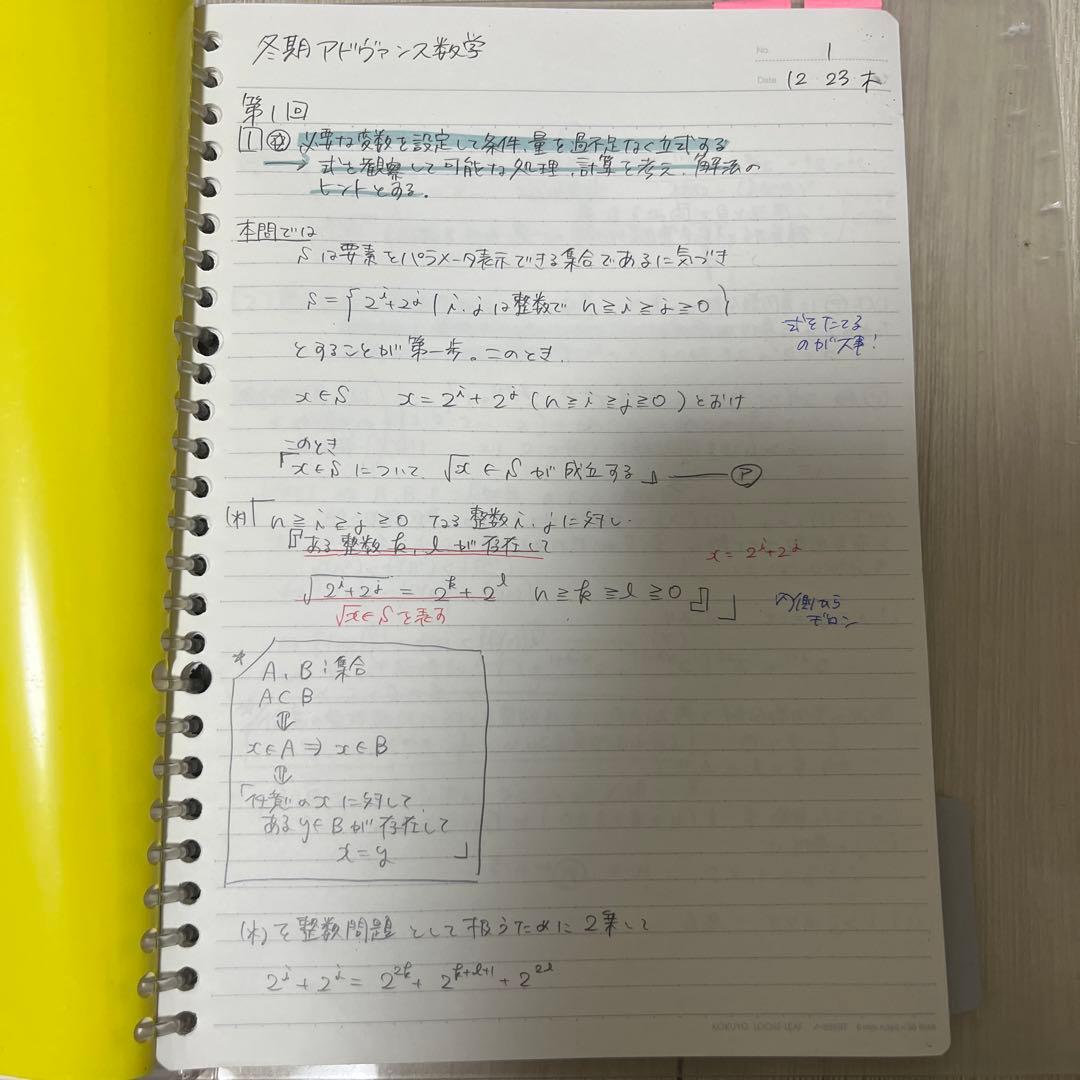 冬期アドヴァンス数学
No. 1
Date 12・23・木
第1回
1 必要な変数を設定して条件、量を過不足なく立式する
→ 式を観察して可能な処理、計算を考え、解法の
ヒントとする。
本問では
Sは要素をパラメータ表示できる集合であるに気づき
S = { 2^i + 2^j | i, jは整数で n ≧ i ≧ j ≧ 0 }
式をたてる
のが大事!
とすることが第一歩。このとき、
x∈S x = 2^i + 2^j (n ≧ i ≧ j ≧ 0) とおけ
このとき
「x∈Sについて、√x ∈ S が成立する」 ——— ㋐
(*)「n ≧ i ≧ j ≧ 0 なる整数i、jに対し、
『ある整数k、lが存在して
x = 2^i + 2^j
√(2^i + 2^j) = 2^k + 2^l n ≧ k ≧ l ≧ 0 』」
√x∈S を表す
内側から
* A、B:集合
A⊂B
⇕
x∈A ⇒ x∈B
⇕
「任意のxに対して、
あるy∈Bが存在して
x = y 」
(*)を整数問題として扱うために2乗して
2^i + 2^j = 2^{2k} + 2^{k+l+1} + 2^{2l}
KOKUYO LOOSE-LEAF